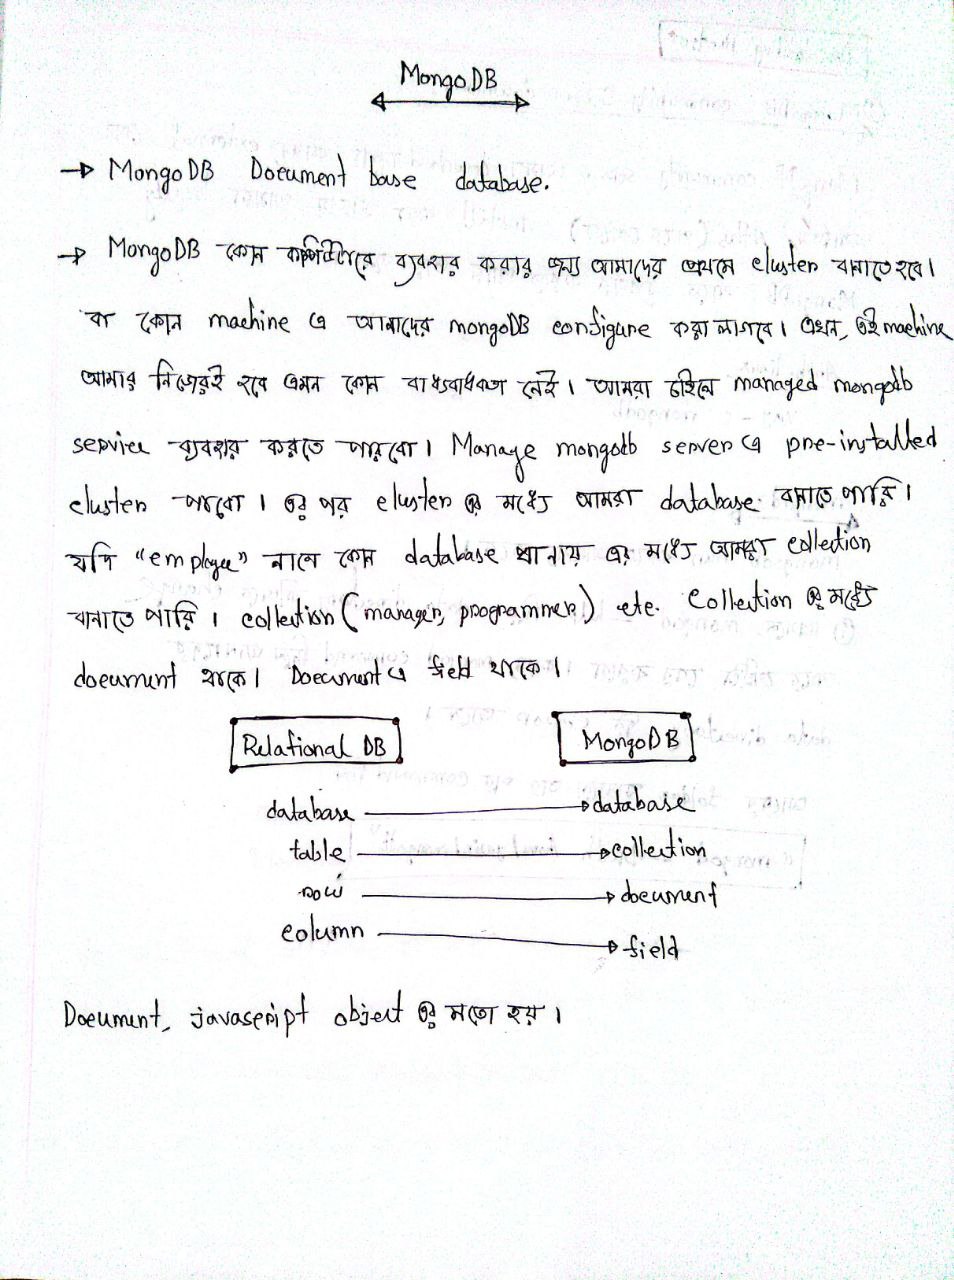 MongoDB
→ MongoDB Document base database.
→ MongoDB কোন কম্পিউটারে ব্যবহার করার জন্য আমাদের প্রথমে cluster বানাতে হবে।
বা কোন machine এ আমাদের mongoDB configure করা লাগবে। এখন, ঐই machine
আমার নিজেরই হবে এমন কোন বাধ্যবাধকতা নেই। আমরা চাইলে managed mongodb
service ব্যবহার করতে পারবো। Manage mongodb server এ pre-installed
cluster পাবো। এর পর cluster এর মধ্যে আমরা database বানাতে পারি।
যদি "employee" নামে কোন database বানায় এর মধ্যে আমরা collection
বানাতে পারি। collection (manager, programmer) etc. Collection এর মধ্যে
document থাকে। Document এ field থাকে।
Relational DB MongoDB
database → database
table → collection
row → document
column → field
Document, javascript object এর মতো হয়।